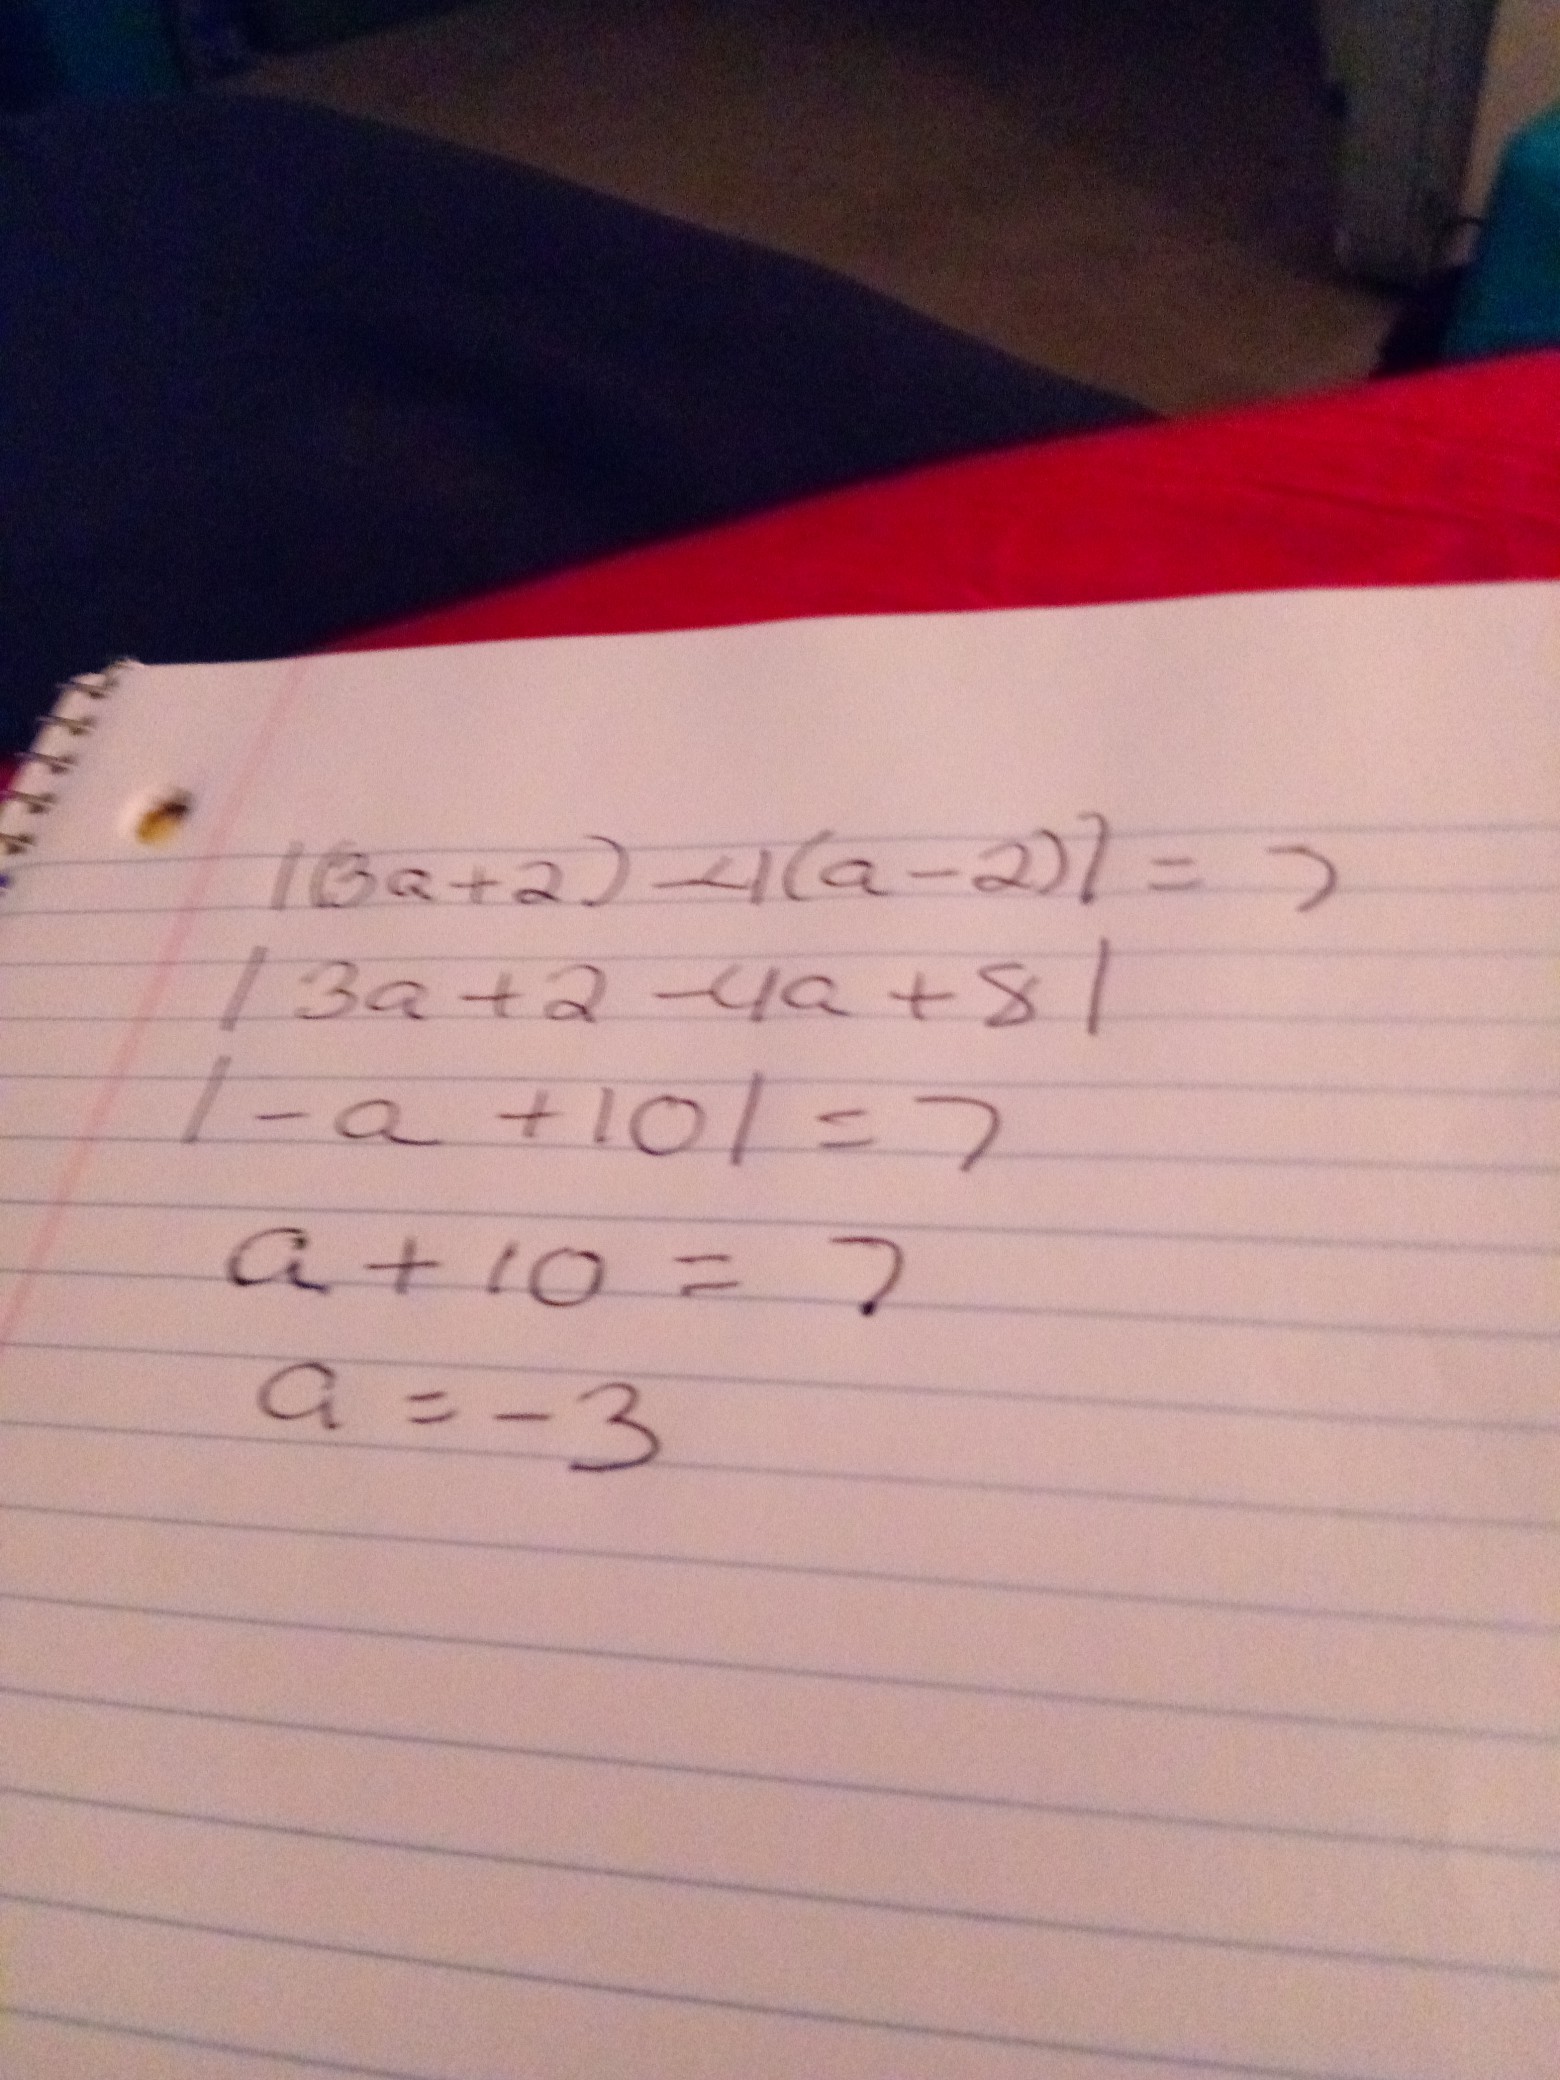 |(3a+2) -4(a-2)| = 7
|3a+2 -4a +8|
|-a +10| = 7
a + 10 = 7
a = -3